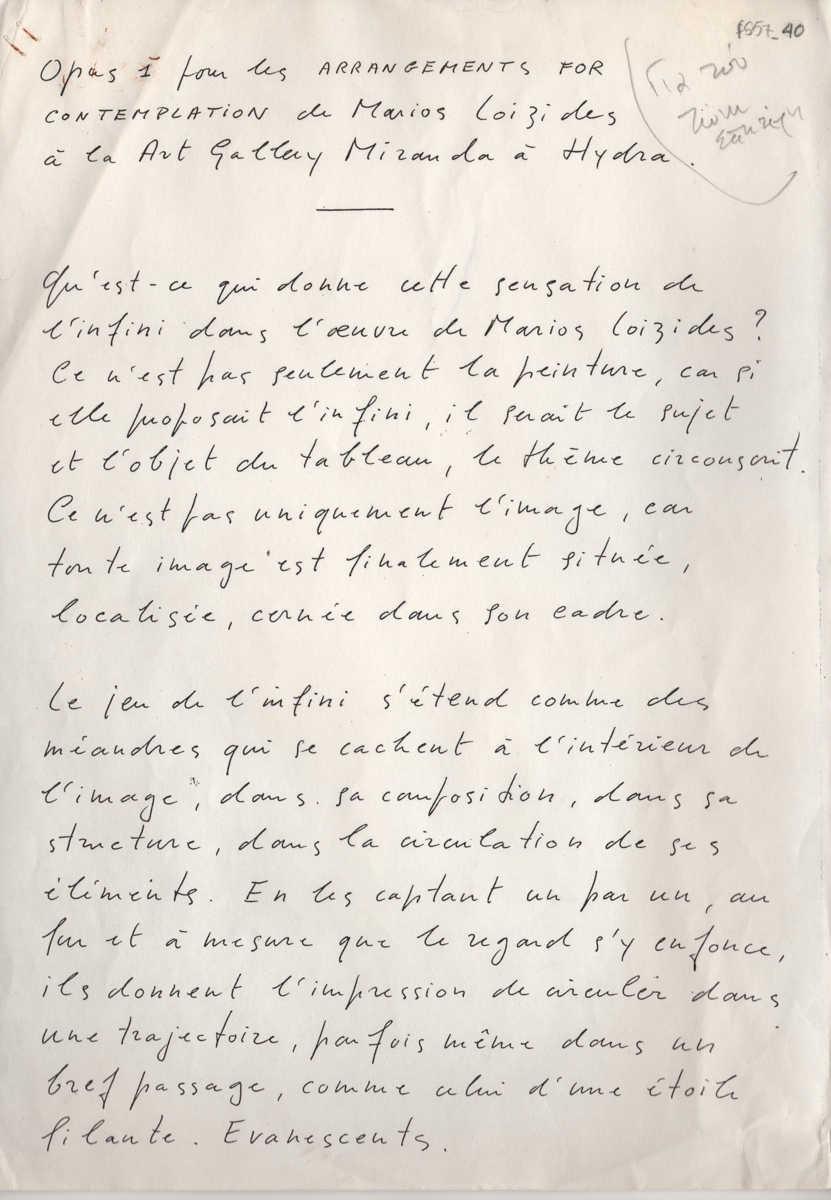 FS57_40
Opus 1 pour les ARRANGEMENTS FOR
CONTEMPLATION de Marios Loizides
à la Art Gallery Miranda à Hydra.
Για τον
Qu'est-ce qui donne cette sensation de
l'infini dans l'œuvre de Marios Loizides ?
Ce n'est pas seulement la peinture, car si
elle proposait l'infini, il serait le sujet
et l'objet du tableau, le thème circonscrit.
Ce n'est pas uniquement l'image, car
toute image est finalement située,
localisée, cernée dans son cadre.
Le jeu de l'infini s'étend comme des
méandres qui se cachent à l'intérieur de
l'image, dans sa composition, dans sa
structure, dans la circulation de ses
éléments. En les captant un par un, au
fur et à mesure que le regard s'y enfonce,
ils donnent l'impression de circuler dans
une trajectoire, parfois même dans un
bref passage, comme celui d'une étoile
filante. Evanescents.